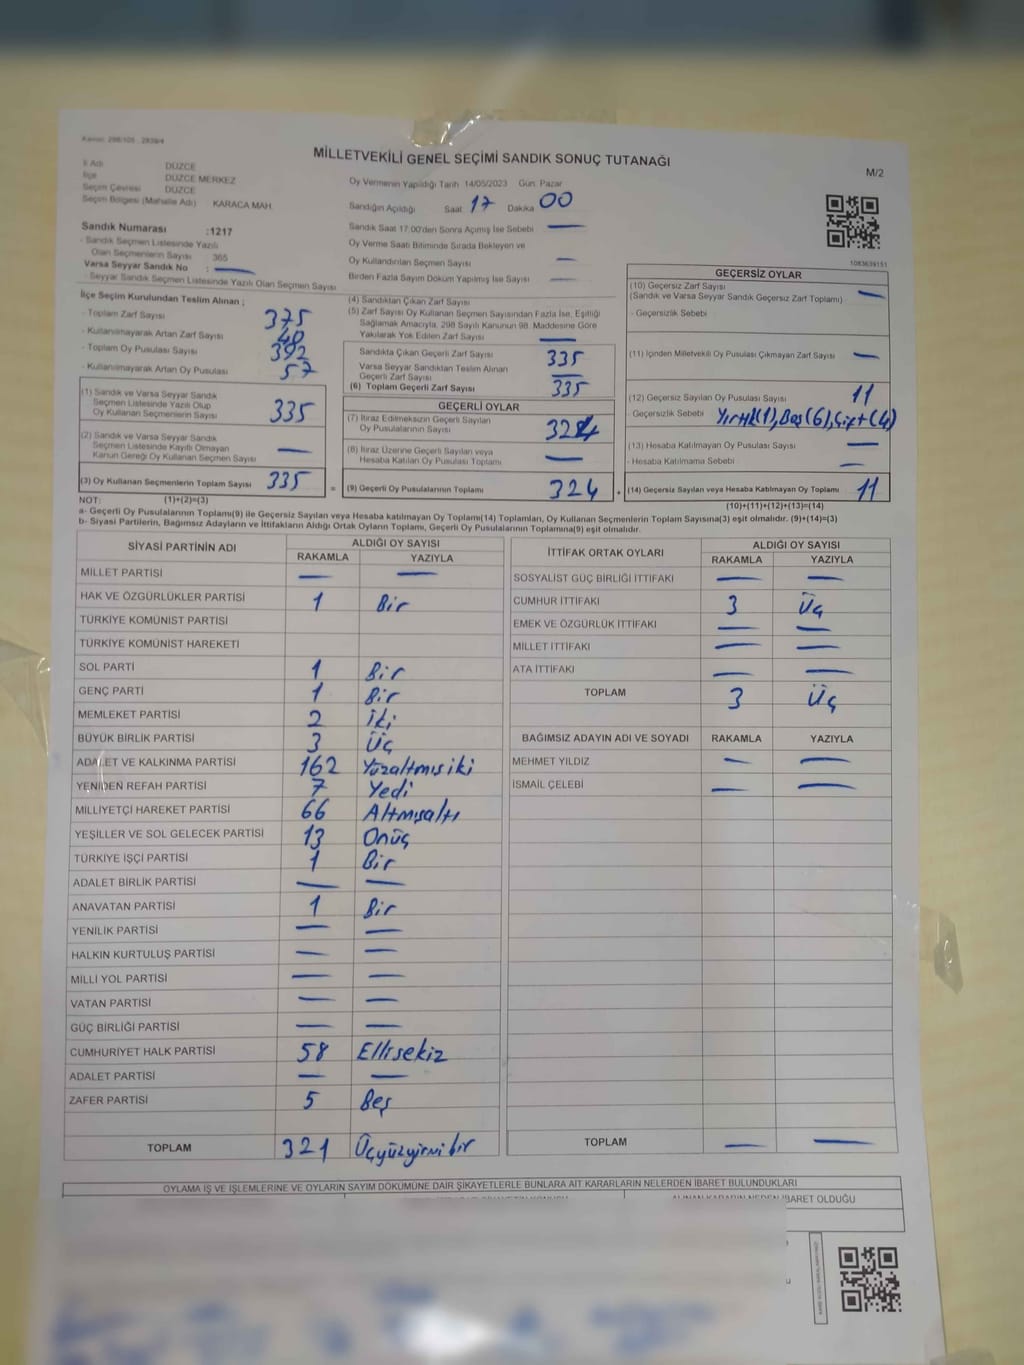 Kanun: 298/105 , 2839/4
MİLLETVEKİLİ GENEL SEÇİMİ SANDIK SONUÇ TUTANAĞI
M/2
İl Adı DÜZCE
İlçe DÜZCE MERKEZ
Seçim Çevresi DÜZCE
Seçim Bölgesi (Mahalle Adı) KARACA MAH.
Sandık Numarası :1217
- Sandık Seçmen Listesinde Yazılı
Olan Seçmenlerin Sayısı : 365
Varsa Seyyar Sandık No : —
- Seyyar Sandık Seçmen Listesinde Yazılı Olan Seçmen Sayısı
Oy Vermenin Yapıldığı Tarih 14/05/2023 Gün: Pazar
Sandığın Açıldığı Saat 17 Dakika 00
Sandık Saat 17.00'den Sonra Açılmış İse Sebebi —
Oy Verme Saati Bitiminde Sırada Bekleyen ve
Oy Kullandırılan Seçmen Sayısı —
Birden Fazla Sayım Döküm Yapılmış İse Sayısı —
1083639151
İlçe Seçim Kurulundan Teslim Alınan ;
- Toplam Zarf Sayısı 375
- Kullanılmayarak Artan Zarf Sayısı 40
- Toplam Oy Pusulası Sayısı 392
- Kullanılmayarak Artan Oy Pusulası 57
(1) Sandık ve Varsa Seyyar Sandık
Seçmen Listesinde Yazılı Olup
Oy Kullanan Seçmenlerin Sayısı 335
(2) Sandık ve Varsa Seyyar Sandık
Seçmen Listesinde Kayıtlı Olmayan
Kanun Gereği Oy Kullanan Seçmen Sayısı —
(3) Oy Kullanan Seçmenlerin Toplam Sayısı 335 =
(4) Sandıktan Çıkan Zarf Sayısı
(5) Zarf Sayısı Oy Kullanan Seçmen Sayısından Fazla İse, Eşitliği
Sağlamak Amacıyla, 298 Sayılı Kanunun 98. Maddesine Göre
Yakılarak Yok Edilen Zarf Sayısı —
Sandıkta Çıkan Geçerli Zarf Sayısı 335
Varsa Seyyar Sandıktan Teslim Alınan
Geçerli Zarf Sayısı —
(6) Toplam Geçerli Zarf Sayısı 335
GEÇERLİ OYLAR
(7) İtiraz Edilmeksizin Geçerli Sayılan
Oy Pusulalarının Sayısı 324
(8) İtiraz Üzerine Geçerli Sayılan veya
Hesaba Katılan Oy Pusulası Toplamı —
(9) Geçerli Oy Pusulalarının Toplamı 324 +
GEÇERSİZ OYLAR
(10) Geçersiz Zarf Sayısı
(Sandık ve Varsa Seyyar Sandık Geçersiz Zarf Toplamı) —
- Geçersizlik Sebebi :
(11) İçinden Milletvekili Oy Pusulası Çıkmayan Zarf Sayısı —
(12) Geçersiz Sayılan Oy Pusulası Sayısı 11
- Geçersizlik Sebebi Yırtık(1), Boş(6), Çift(4)
(13) Hesaba Katılmayan Oy Pusulası Sayısı —
- Hesaba Katılmama Sebebi —
(14) Geçersiz Sayılan veya Hesaba Katılmayan Oy Toplamı 11
NOT: (1)+(2)=(3)
(10)+(11)+(12)+(13)=(14)
a- Geçerli Oy Pusulalarının Toplamı(9) ile Geçersiz Sayılan veya Hesaba katılmayan Oy Toplamı(14) Toplamları, Oy Kullanan Seçmenlerin Toplam Sayısına(3) eşit olmalıdır. (9)+(14)=(3)
b- Siyasi Partilerin, Bağımsız Adayların ve İttifakların Aldığı Ortak Oyların Toplamı, Geçerli Oy Pusulalarının Toplamına(9) eşit olmalıdır.
SİYASİ PARTİNİN ADI ALDIĞI OY SAYISI
RAKAMLA YAZIYLA
MİLLET PARTİSİ — —
HAK VE ÖZGÜRLÜKLER PARTİSİ 1 Bir
TÜRKİYE KOMÜNİST PARTİSİ
TÜRKİYE KOMÜNİST HAREKETİ
SOL PARTİ 1 Bir
GENÇ PARTİ 1 Bir
MEMLEKET PARTİSİ 2 İki
BÜYÜK BİRLİK PARTİSİ 3 Üç
ADALET VE KALKINMA PARTİSİ 162 Yüzaltmışiki
YENİDEN REFAH PARTİSİ 7 Yedi
MİLLİYETÇİ HAREKET PARTİSİ 66 Altmışaltı
YEŞİLLER VE SOL GELECEK PARTİSİ 13 Onüç
TÜRKİYE İŞÇİ PARTİSİ 1 Bir
ADALET BİRLİK PARTİSİ — —
ANAVATAN PARTİSİ 1 Bir
YENİLİK PARTİSİ — —
HALKIN KURTULUŞ PARTİSİ — —
MİLLİ YOL PARTİSİ — —
VATAN PARTİSİ — —
GÜÇ BİRLİĞİ PARTİSİ — —
CUMHURİYET HALK PARTİSİ 58 Ellisekiz
ADALET PARTİSİ — —
ZAFER PARTİSİ 5 Beş
TOPLAM 321 Üçyüzyirmibir
İTTİFAK ORTAK OYLARI ALDIĞI OY SAYISI
RAKAMLA YAZIYLA
SOSYALİST GÜÇ BİRLİĞİ İTTİFAKI — —
CUMHUR İTTİFAKI 3 Üç
EMEK VE ÖZGÜRLÜK İTTİFAKI — —
MİLLET İTTİFAKI — —
ATA İTTİFAKI — —
TOPLAM 3 Üç
BAĞIMSIZ ADAYIN ADI VE SOYADI RAKAMLA YAZIYLA
MEHMET YILDIZ — —
İSMAİL ÇELEBİ — —
TOPLAM — —
OYLAMA İŞ VE İŞLEMLERİNE VE OYLARIN SAYIM DÖKÜMÜNE DAİR ŞİKAYETLERLE BUNLARA AİT KARARLARIN NELERDEN İBARET BULUNDUKLARI
ALINAN KARARIN NEDEN İBARET OLDUĞU